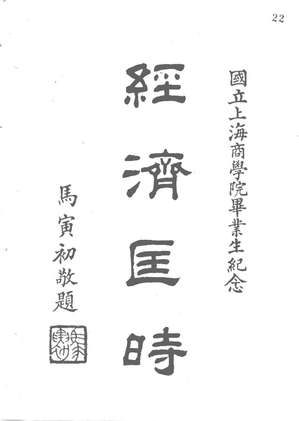 22
國立上海商學院畢業生紀念
經濟匡時
馬寅初敬題